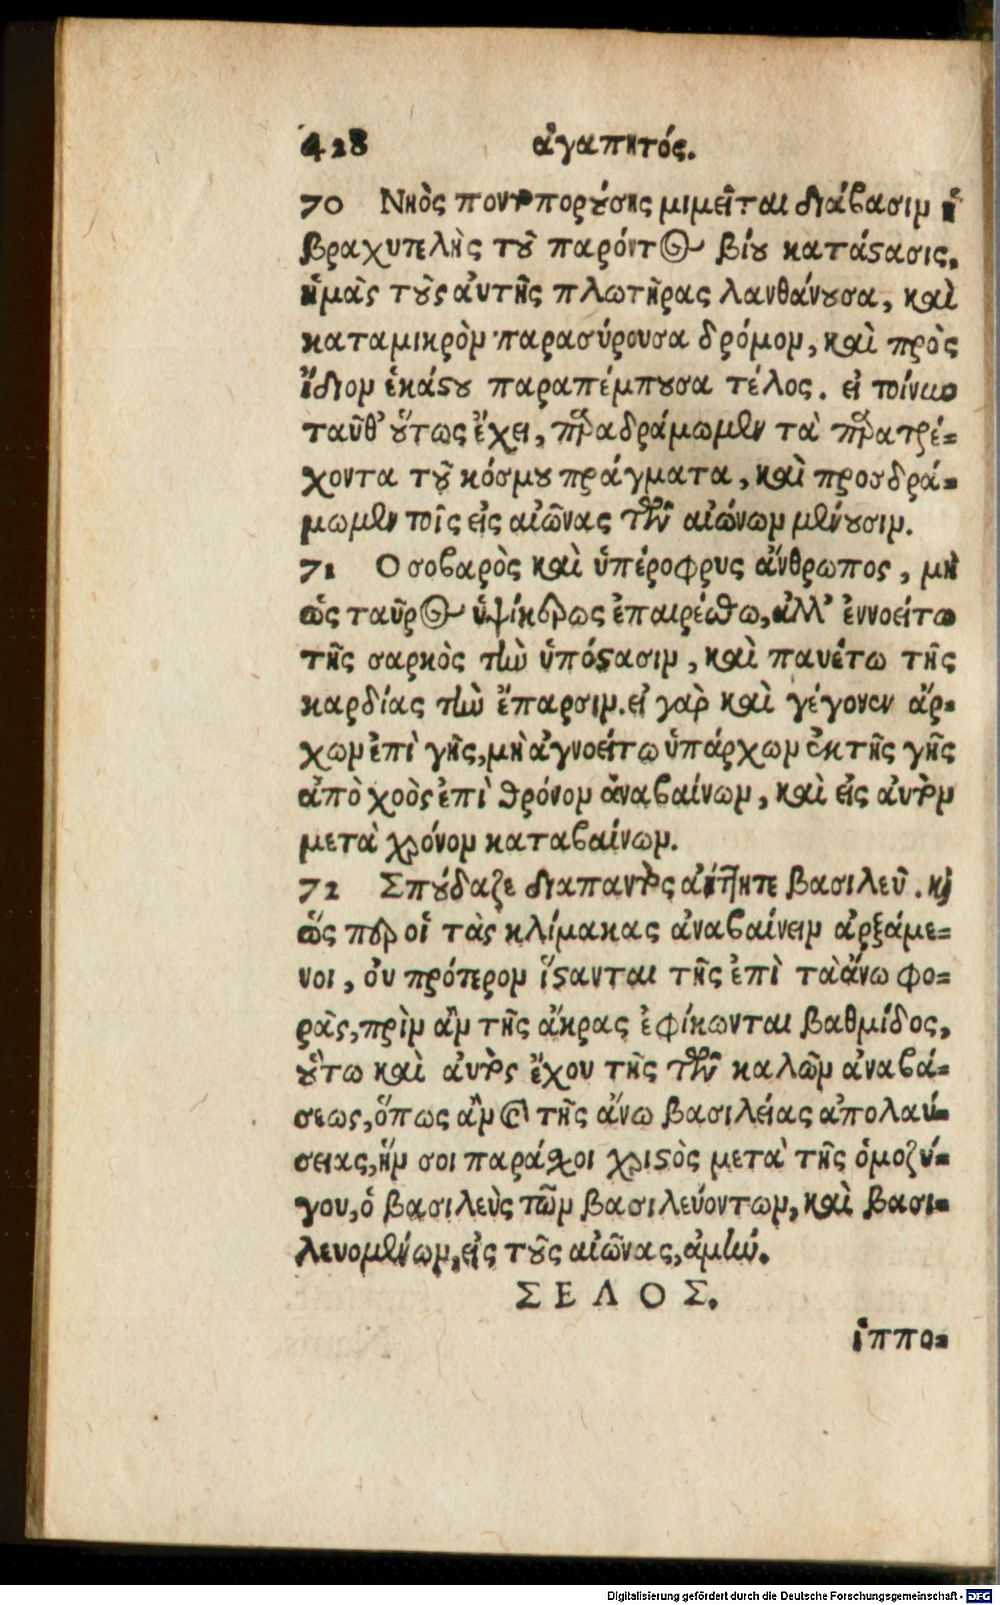 428 ἀγαπητός.
70 Νηὸς ποντοπορούσης μιμεῖται διάβασιν ἡ
βραχυτελὴς τοῦ παρόντος βίου κατάστασις,
ἡμᾶς τοὺς αὐτῆς πλωτῆρας λανθάνουσα, καὶ
καταμικρὸν παρασύρουσα δρόμον, καὶ πρὸς
ἴδιον ἑκάστου παραπέμπουσα τέλος. εἰ τοίνυν
ταῦθ' οὕτως ἔχει, παραδράμωμεν τὰ παρατρέ-
χοντα τοῦ κόσμου πράγματα, καὶ προσδρά-
μωμεν τοῖς εἰς αἰῶνας τῶν αἰώνων μένουσιν.
71 Ο σοβαρὸς καὶ ὑπέροφρυς ἄνθρωπος, μὴ
ὡς ταῦρος ὑψίκερως ἐπαιρέσθω, ἀλλ' ἐννοείτω
τῆς σαρκὸς τὴν ὑπόστασιν, καὶ παυέτω τῆς
καρδίας τὴν ἔπαρσιν. εἰ γὰρ καὶ γέγονεν ἄρ-
χων ἐπὶ γῆς, μὴ ἀγνοείτω ὑπάρχων ἐκ τῆς γῆς
ἀπὸ χοὸς ἐπὶ θρόνον ἀναβαίνων, καὶ εἰς αὐτὸν
μετὰ χρόνον καταβαίνων.
72 Σπούδαζε διαπαντὸς ἀήττητε βασιλεῦ. καὶ
ὥσπερ οἱ τὰς κλίμακας ἀναβαίνειν ἀρξάμε-
νοι, οὐ πρότερον ἵστανται τῆς ἐπὶ τὰ ἄνω φο-
ρᾶς, πρὶν ἂν τῆς ἄκρας ἐφίκωνται βαθμίδος,
οὕτω καὶ αὐτὸς ἔχου τῆς τῶν καλῶν ἀναβά-
σεως, ὅπως ἂν καὶ τῆς ἄνω βασιλείας ἀπολαύ-
σειας, ἥν σοι παράσχοι χριστὸς μετὰ τῆς ὁμοζύ-
γου, ὁ βασιλεὺς τῶν βασιλευόντων, καὶ βασι-
λευομένων, εἰς τοὺς αἰῶνας, ἀμήν.
ΣΕΛΟΣ.
ἱππο-
Digitalisierung gefördert durch die Deutsche Forschungsgemeinschaft - DFG